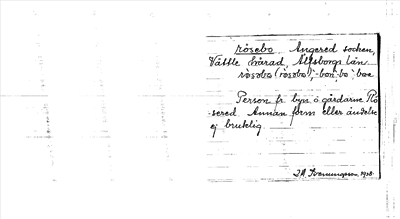 rösebo Angered socken,
Vättle härad, Älfsborgs län
rösobo (rosobo), -bon, -bo, -boa
Person fr. byn o gårdarne Rö
-sered. Annan form eller ändelse
ej bruklig
1928.